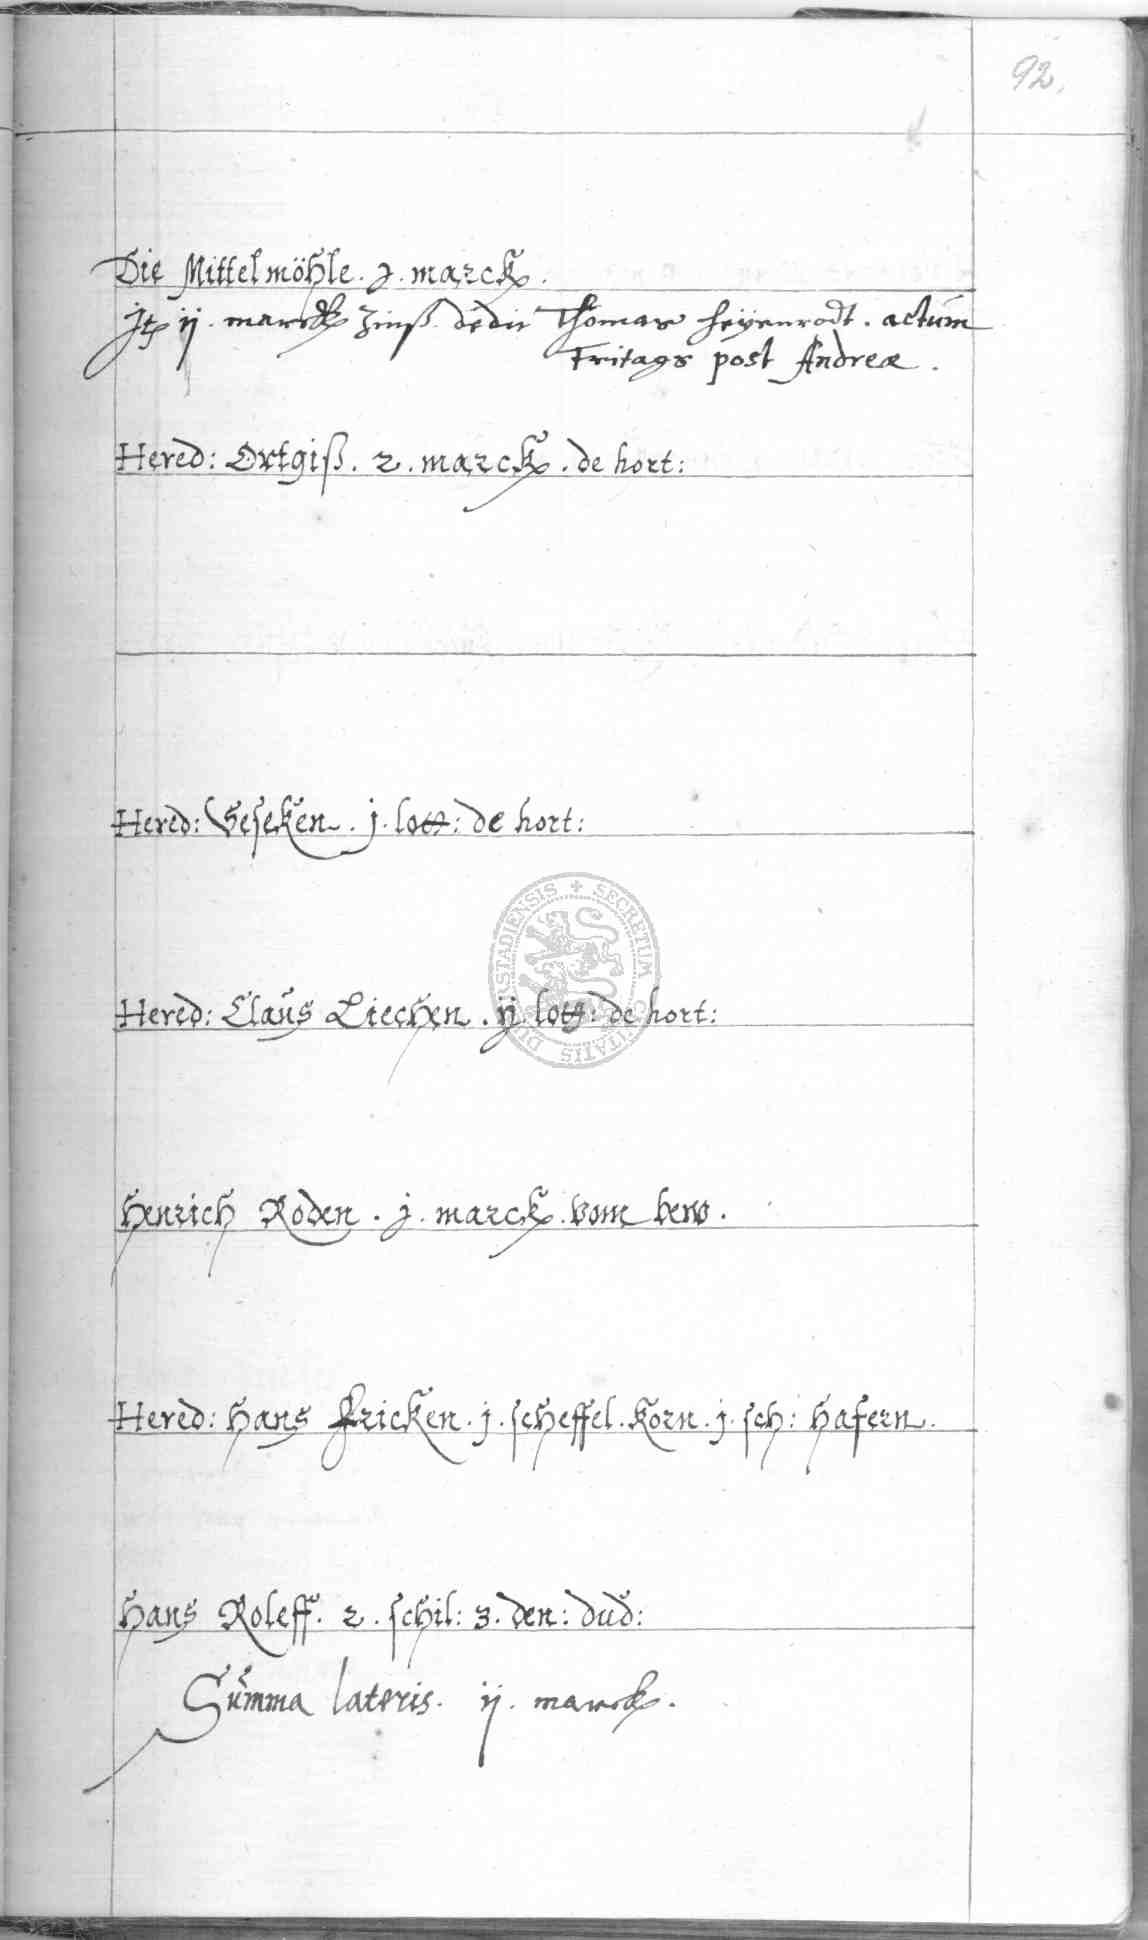 92.
Die Mittelmöhle. j. marck.
Jtem ij. marck Zinß dedit Thomas Heÿenrodt. actum
Fritags post Andreæ.
Hered: Ortgiß. 2. marck. de hort:
Hered: Geseken. j. lott: de hort:
Hered: Claus Liechen. ij. lott: de hort:
Henrich Roden. j. marck. vom
Hered: Hans Fricken. j. scheffel. Korn. j. sch: Hafern.
Hans Roleff. 2. schil: 3. den: dud:
Summa lateris. ij. marck.
SECRETUM CIVITATIS DUDERSTADIENSIS